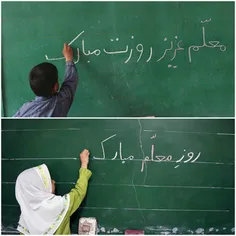 معلّم عزیز روزت مبارک
روز معلّم مبارک